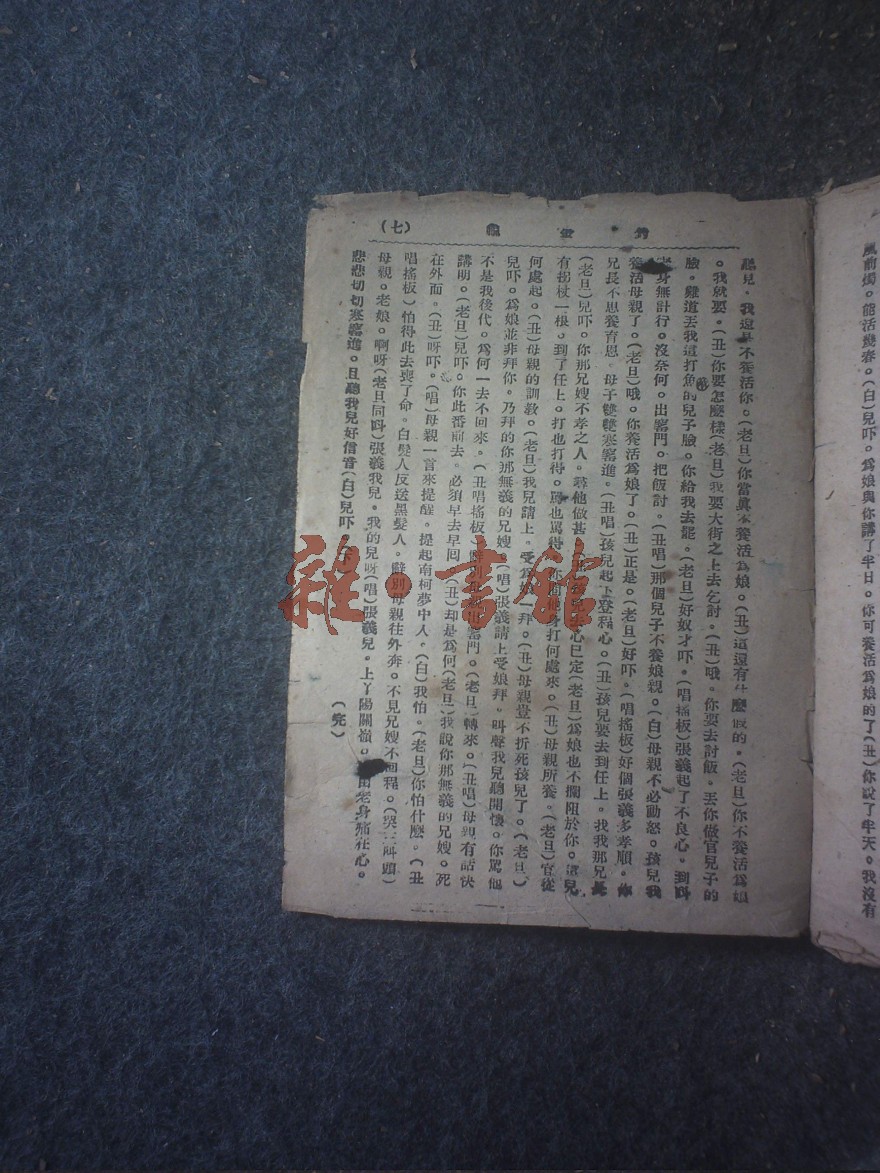 風前燭。能活幾春。(白)兒吓。爲娘與你講了半日。你可養活爲娘的了(丑)你說了半天。我沒有
釣金龜 (七)
聽見。我這是不養活你。(老旦)你當眞不養活爲娘。(丑)這還有什麼假的。(老旦)你不養活爲娘
。我就要。(丑)你要怎麼樣(老旦)我要大街之上去乞討。(丑)哦。你要去討飯。丟你做官兒子的
臉。難道丟我這打魚的兒子臉。你給我去罷。(老旦)好奴才吓。(唱搖板)張義起了不良心。到叫
身無計行。沒奈何。出窰門。把飯討。(丑唱)那個兒子不養娘親。(白)母親不必動怒。孩兒我
養活母親了。(老旦)哦。你養活爲娘了。(丑)正是。(老旦)好吓。(唱搖板)好個張義多孝順。你
兄長不思養育恩。母子雙雙寒窰進。(丑唱)孩兒起下登程心。(丑)孩兒要去到任上。找我那兄長
(老旦)兒吓。你那兄嫂不孝之人。尋他做甚。(丑)孩兒去心已定(老旦)爲娘也不攔阻於你。這兒
有拐杖一根。到了任上。打也打得。罵也罵得。他身打何處來。(丑)母親所養。(老旦)官從
何處起。(丑)母親的訓敎。(老旦)我兒請上。受爲娘一拜。(丑)母親豈不折死孩兒了。(老旦)
兒吓。爲娘並非拜你。乃拜的你那無義的兄嫂。(唱)張義請上受娘拜。叫聲我兒聽開懷。你罵他
不是我後代。爲何一去不回來。(丑唱搖板)辭別母親出窰門。(老旦)轉來。(丑唱)母親有話快
講明。(老旦)兒吓。你此番前去。必須早去早回。(丑)却是爲何(老旦)我說你那無義的兄嫂。死
在外面。(丑)呀吓。(唱)母親一首來提醒。提起南柯夢中人。(白)我怕。(老旦)你怕什麼。(丑
唱搖板)怕得此去喪了命。白髮人反送黑髮人。辭別母親往外奔。不見兄嫂不回程。(哭三叫頭)
母親。老娘。啊呀(老旦同叫)張義我兒。我的兒呀(唱)張義兒。上了陽關嶺。老身痛在心。
悲悲切切寒窰進。且聽我兒好信音(白)兒吓。
(完)
雜·書館